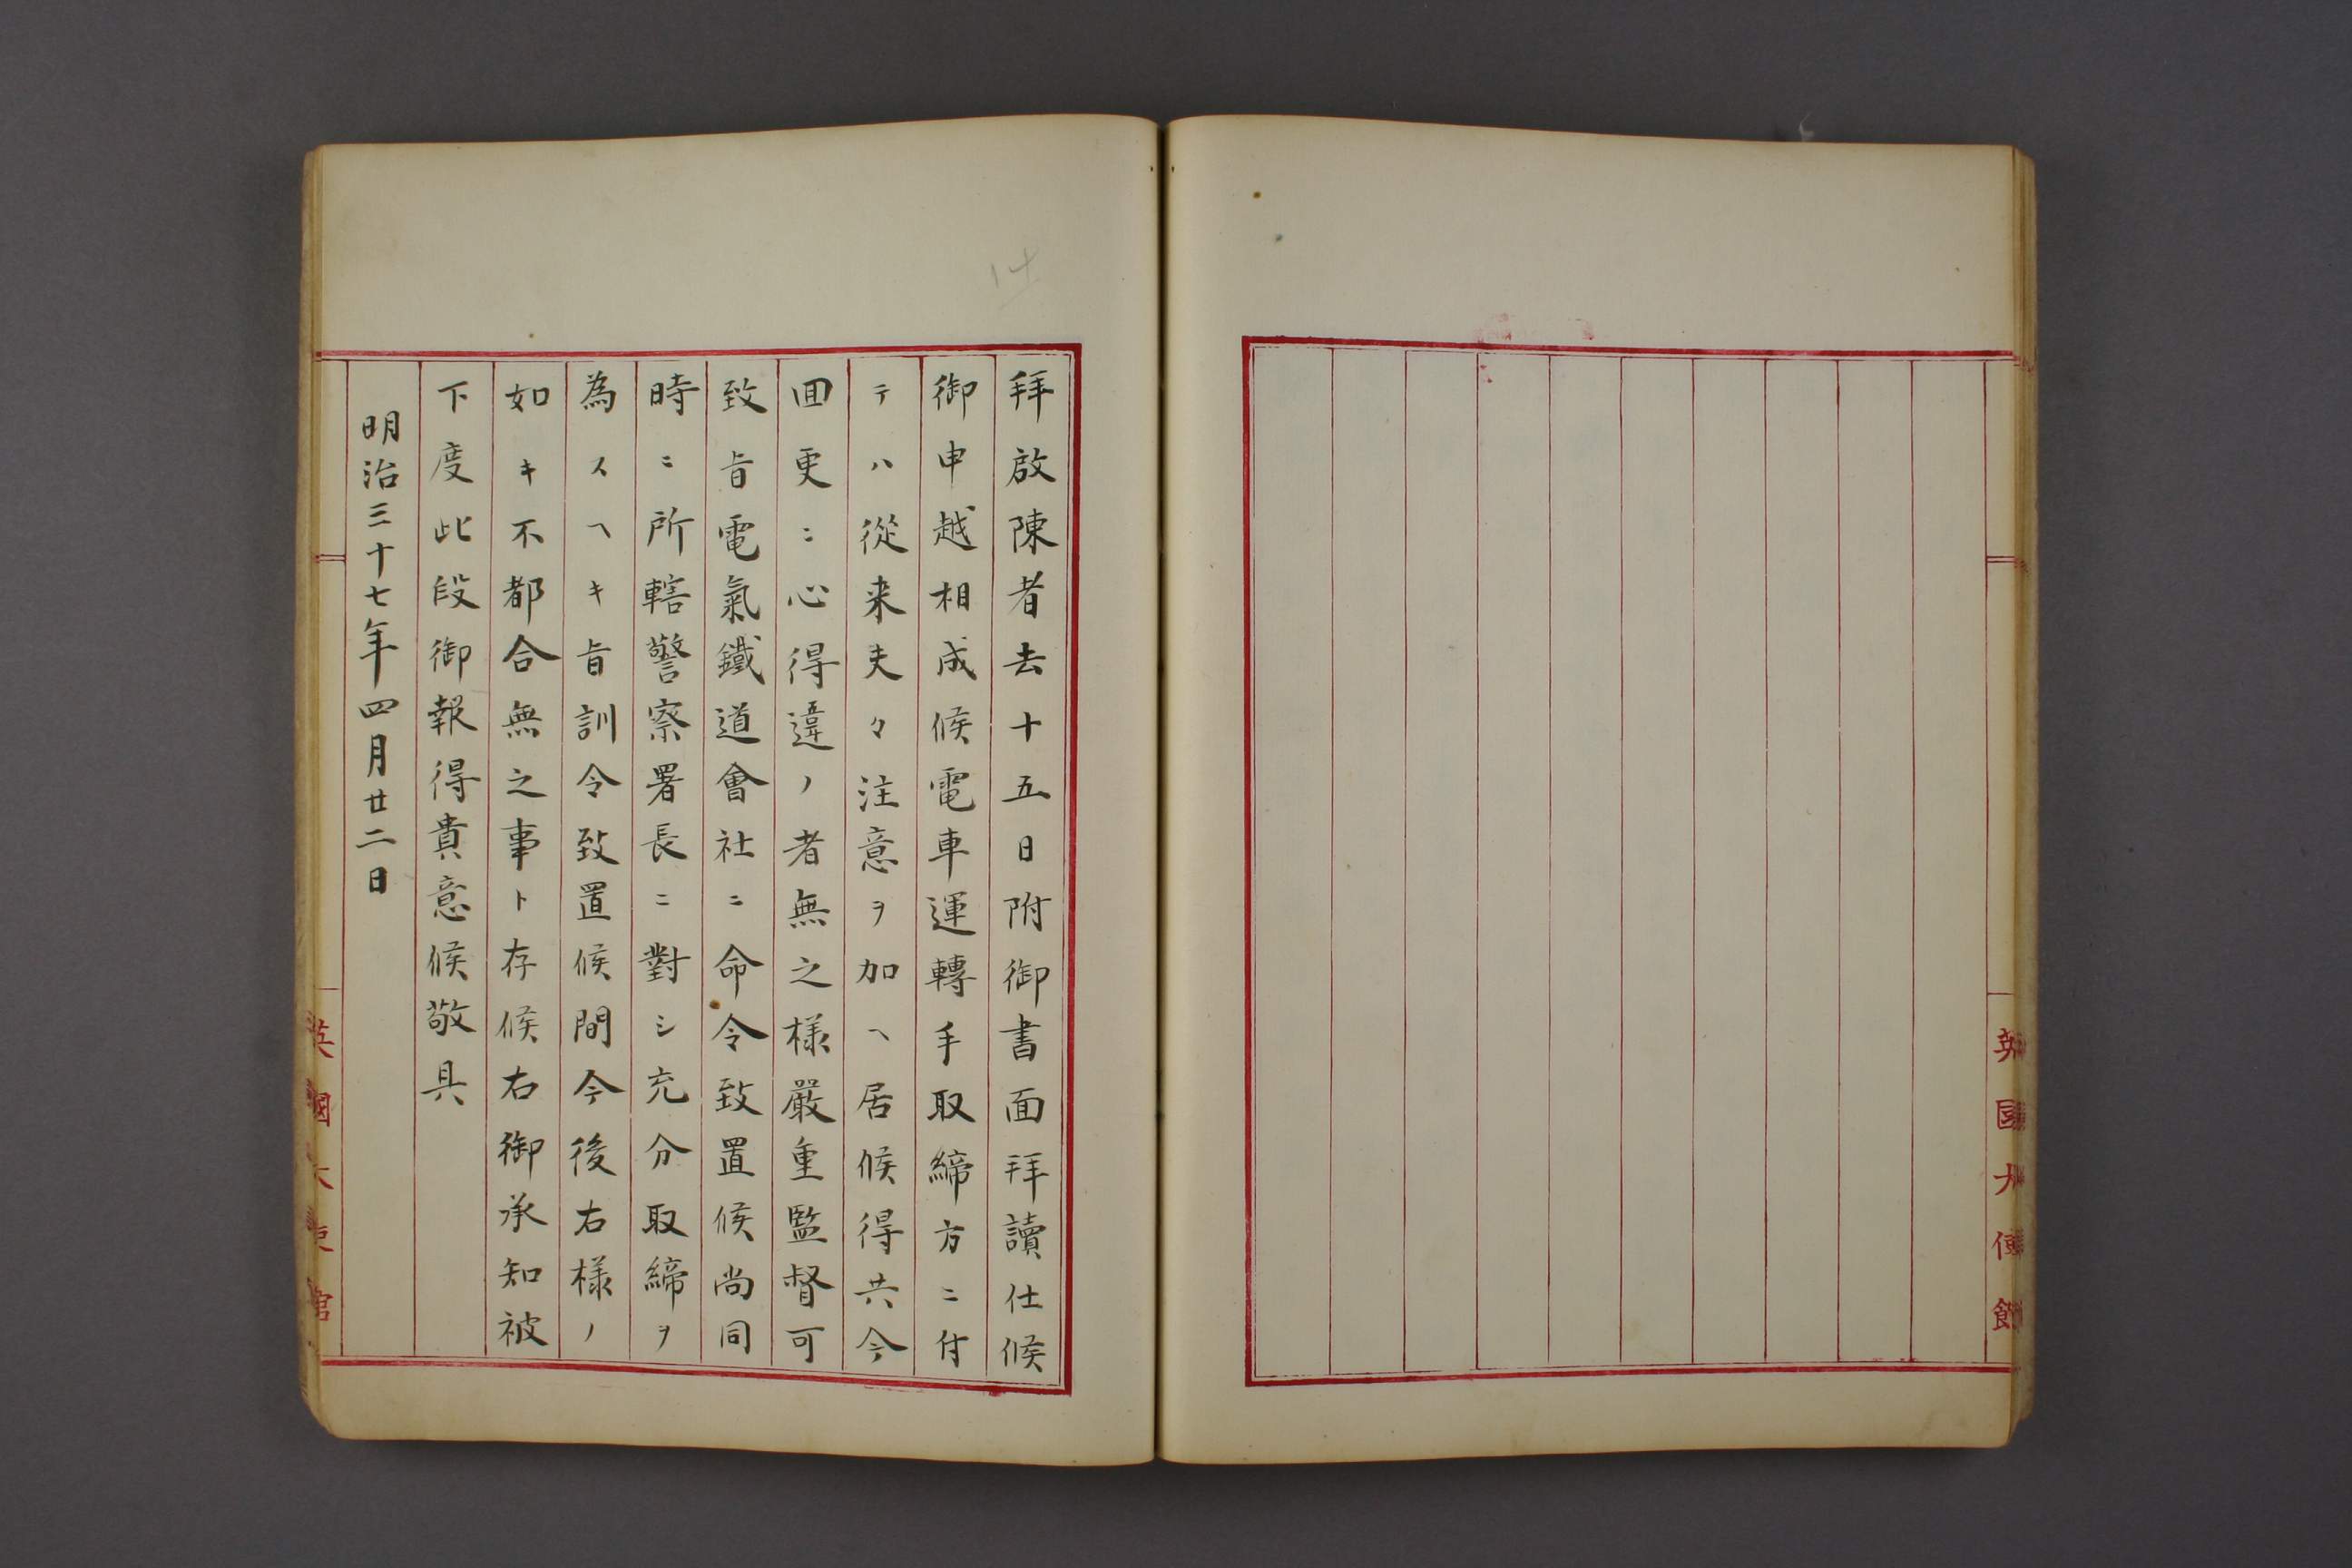 英國大使館
14
拜啟陳者去十五日附御書面拜讀仕候
御申越相成候電車運轉手取締方ニ付
テハ從来夫々注意ヲ加ヘ居候得共今
囬更ニ心得違ノ者無之樣嚴重監督可
致旨電氣鐵道會社ニ命令致置候尚同
時ニ所轄警察署長ニ對シ充分取締ヲ
為スヘキ旨訓令致置候間今後右樣ノ
如キ不都合無之事ト存候右御承知被
下度此段御報得貴意候敬具
明治三十七年四月廿二日
英國大使館